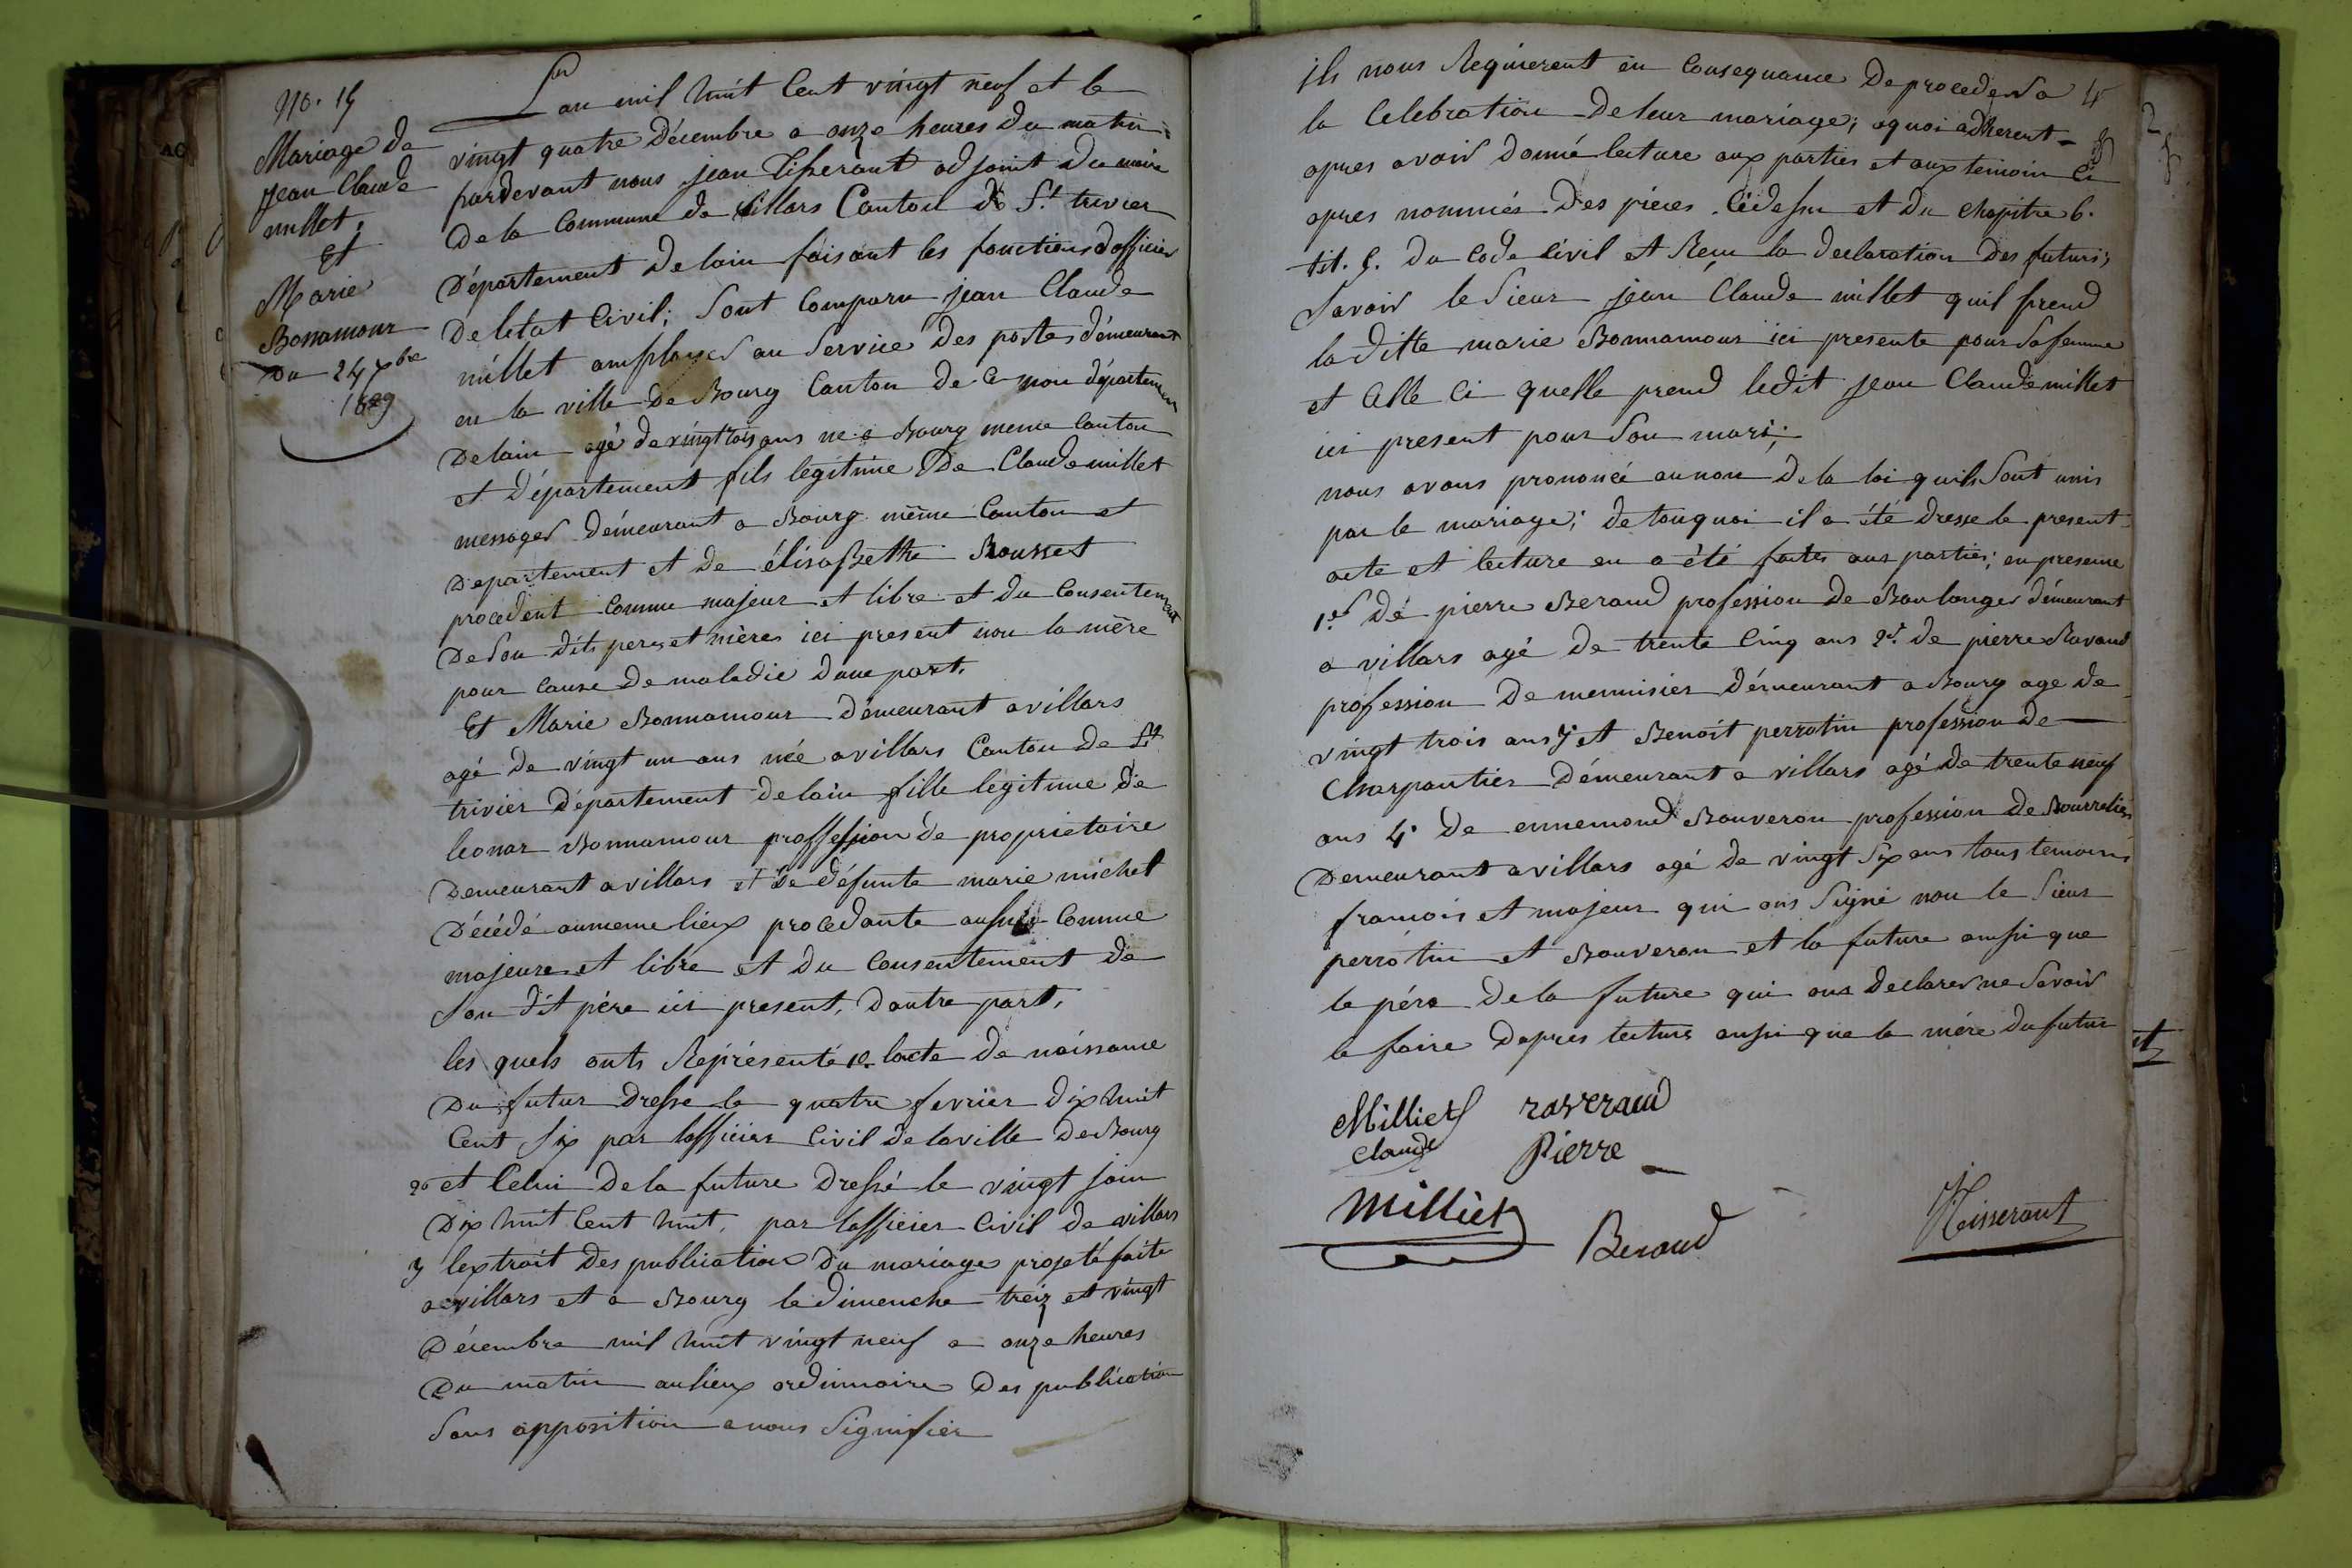 No. 15
Mariage de
Jean Claude
millet.
Et
Marie
Bonnamour
Du 24 xbre
1829
Lan mil huit Cent vingt neuf et le
vingt quatre Décembre a onze heures du matin
pardevant nous jean Tisserant adjoint du maire
De la Commune de villars Canton de St. trivier
Département de lain faisant les fonctions dofficier
De letat Civil; Sont Comparu jean Claude
millet employer au Service des postes démeurant
en la ville de Bourg Canton de Ce nom département
Delain agé de vingt trois ans ne a Bourg meme Canton
et Département fils légitime De Claude millet
messager Démeurant a Bourg même Canton et
Departement et de élisaBethe Rousset
procedent Comme majeur et libre et du Consentement
De Son dits peres et mères ici present non la mère
pour Cause de maladie dune part.
Et Marie Bonnamour Démeurant a villars
agé de vingt un ans née a villars Canton de St
trivier Département delain fille legitime de
leonar Bonnamour proffession de propriétaire
Demeurant a villars et de défunte marie michel
Décédé aumeme lieux procedante aussi Comme
majeure et libre et du Consentement de
Son dit père ici present, Dautre part,
les quels onts Représenté 1o. lacte de naissance
Du futur Dresse le quatre fevrier dix huit
Cent Six par lofficier Civil de laville de Bourg
2o et Celui De la future Dressé le vingt join
Dix huit Cent huit, par lofficier Civil de villars
3 lextrait Des publication du mariages projeté faite
a villars et a Bourg le dimenche treiz et vingt
Décembre mil huit vingt neuf a onze heures
Du matin aulieux ordinnaire Des publication
Sans opposition a nous Signifier
ils nous Requierent en Consequance De proceder a
la Celebration De leur mariage; aquoi adherent
apres avoir donné lecture aux parties et aux temoin Ci
apres nommés Des pièces Cidessu et du chapitre 6.
tit. 5. du Code Civil et Reçu la declaration Des futurs;
Savoir le Sieur jean Claude millet quil prend
la ditte marie Bonnamour ici presente pour Sa femme
et Celle Ci quelle prend ledit jean Claude millet
ici present pour Son mari;
nous avons prononcé aunom De la loi quils Sont unis
par le mariage; de touquoi il a été dresse le present
acte et lecture en a été faites aux parties; en presence
1er de pierre Beraud profession de Boulonger démeurant
a villars agé de trente Cinq ans 2d. de pierre Ravaud
profession De mennisier Démeurant a Bourg age de
vingt trois ans 3 et Benoît perrotin profession de
Charpantier Démeurant a villars agé de trente neuf
ans 4. de ennemond Bouveron profession de Bourrelier
Demeurant a villars agé de vingt Six ans tous temoins
francois et majeur qui ons Signé non le Sieur
perrotin et Bouveron et la future aussi que
le pére De la future qui ons declarer ne Savoir
le faire Dapres lecture aussi que la mére du futur
Milliet raveraud
Claude Pierre
Milliet
Beraud
Tisserant